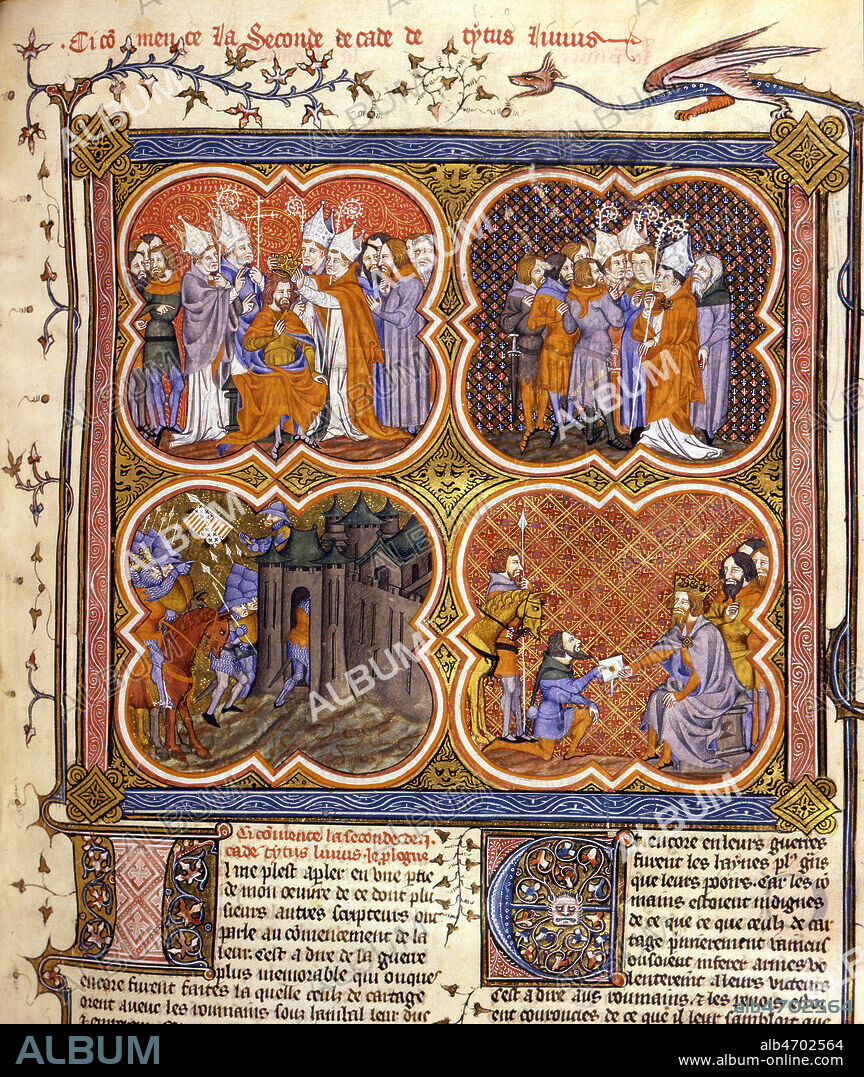 Ci cōmence la Seconde decade de tytus liuius
Ci cōmence la seconde de .i.
cade tytus liuius . le plogue
Il me plest apler en vne ptie
de mon oeuure de ce dont plu
sieurs autres scripteurs ont
parle au cōmencement de la
leur. Cest a dire de la guerre
plus memorable qui onques
encore furent faites la quelle ceuls de cartage
orent aueuc les roumains souz hanibal leur duc
Et encore en leurs guerres
furent les haynes plꝰ gñs
que leurs pooirs . Car les ro
mains estoient indignes
de ce que ceuls de car
tage premierement vaincus
ousoient inferer armes vo
lenterement a leurs victeurs
Cest a dire aus roumains . & les
ent courouciés de ce que il leur sambloit que
ALBUM
alb4702564
alb4702564
www.album-online.com